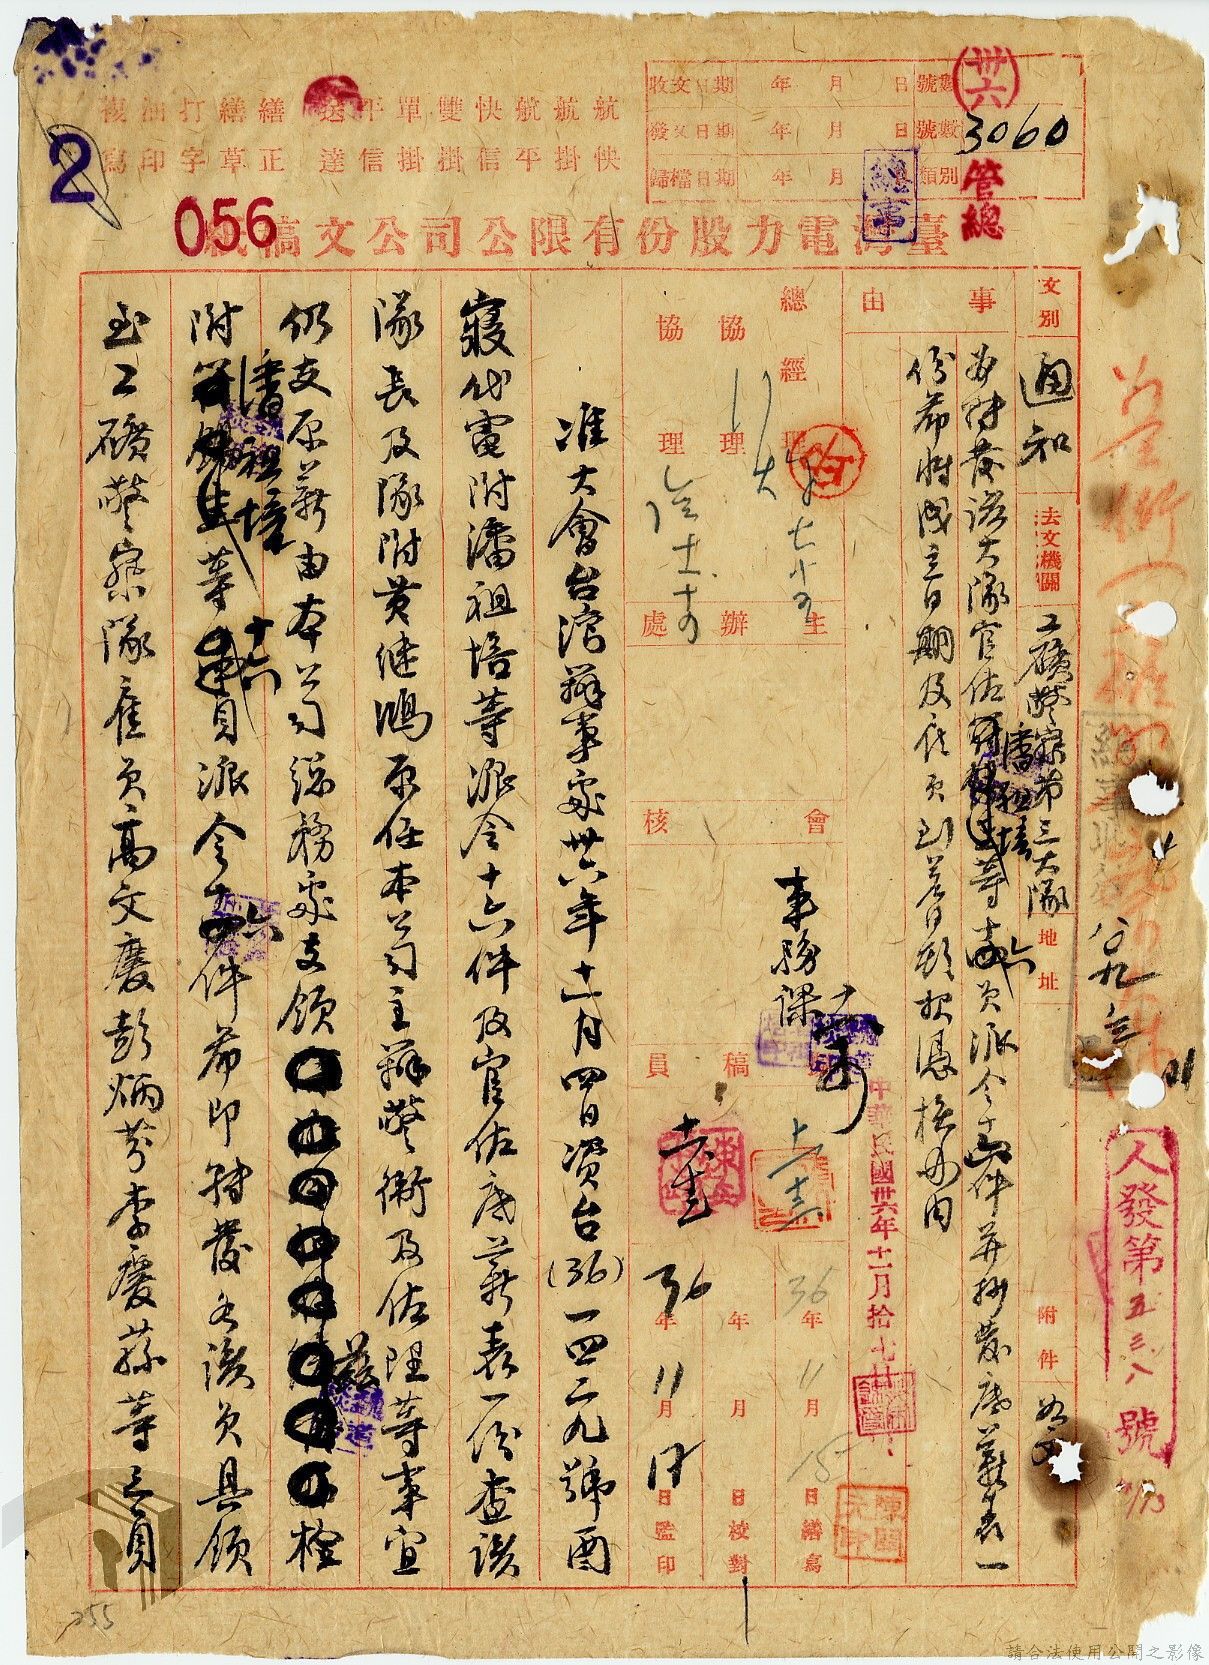 收文日期 年 月 日 號數
發文日期 年 月 日 號數
歸檔日期 年 月 類別
卅六
3060
管總
總事
航快
航掛
航平
快信
雙掛
單掛
平信
送達
繕正
繕草
打字
油印
複寫
2
056
臺灣電力股份有限公司公文稿紙
文別
通知
去文機關
工礦警察第三大隊
地址
附件
如文
事由
為轉發該大隊官佐潘祖培等十六員派令十六件并抄發底薪表一
份希將成立日期及任員到差日期報憑核辦由
總經理
協理
協理
主辦處
會核
事務課
稿員
中華民國卅六年十一月拾七
36年11月15日繕寫
年 月 日校對
36年11月17日監印
准大會台灣辦事處卅六年十一月四日資台(36)一四二九號酉
寢代電附潘祖培等派令十六件及官佐底薪表一份查該
隊長及隊附黃繼鴻原任本公司主辦警衛及佐理等事宜
仍支原薪由本公司總務處支領
茲檢
附潘祖培等十六員派令十六件希即轉發各該員具領
至工礦警察隊雇員高文慶彭炳芬李慶蓀等三員
人發第五三八號
255
請合法使用公開之影像